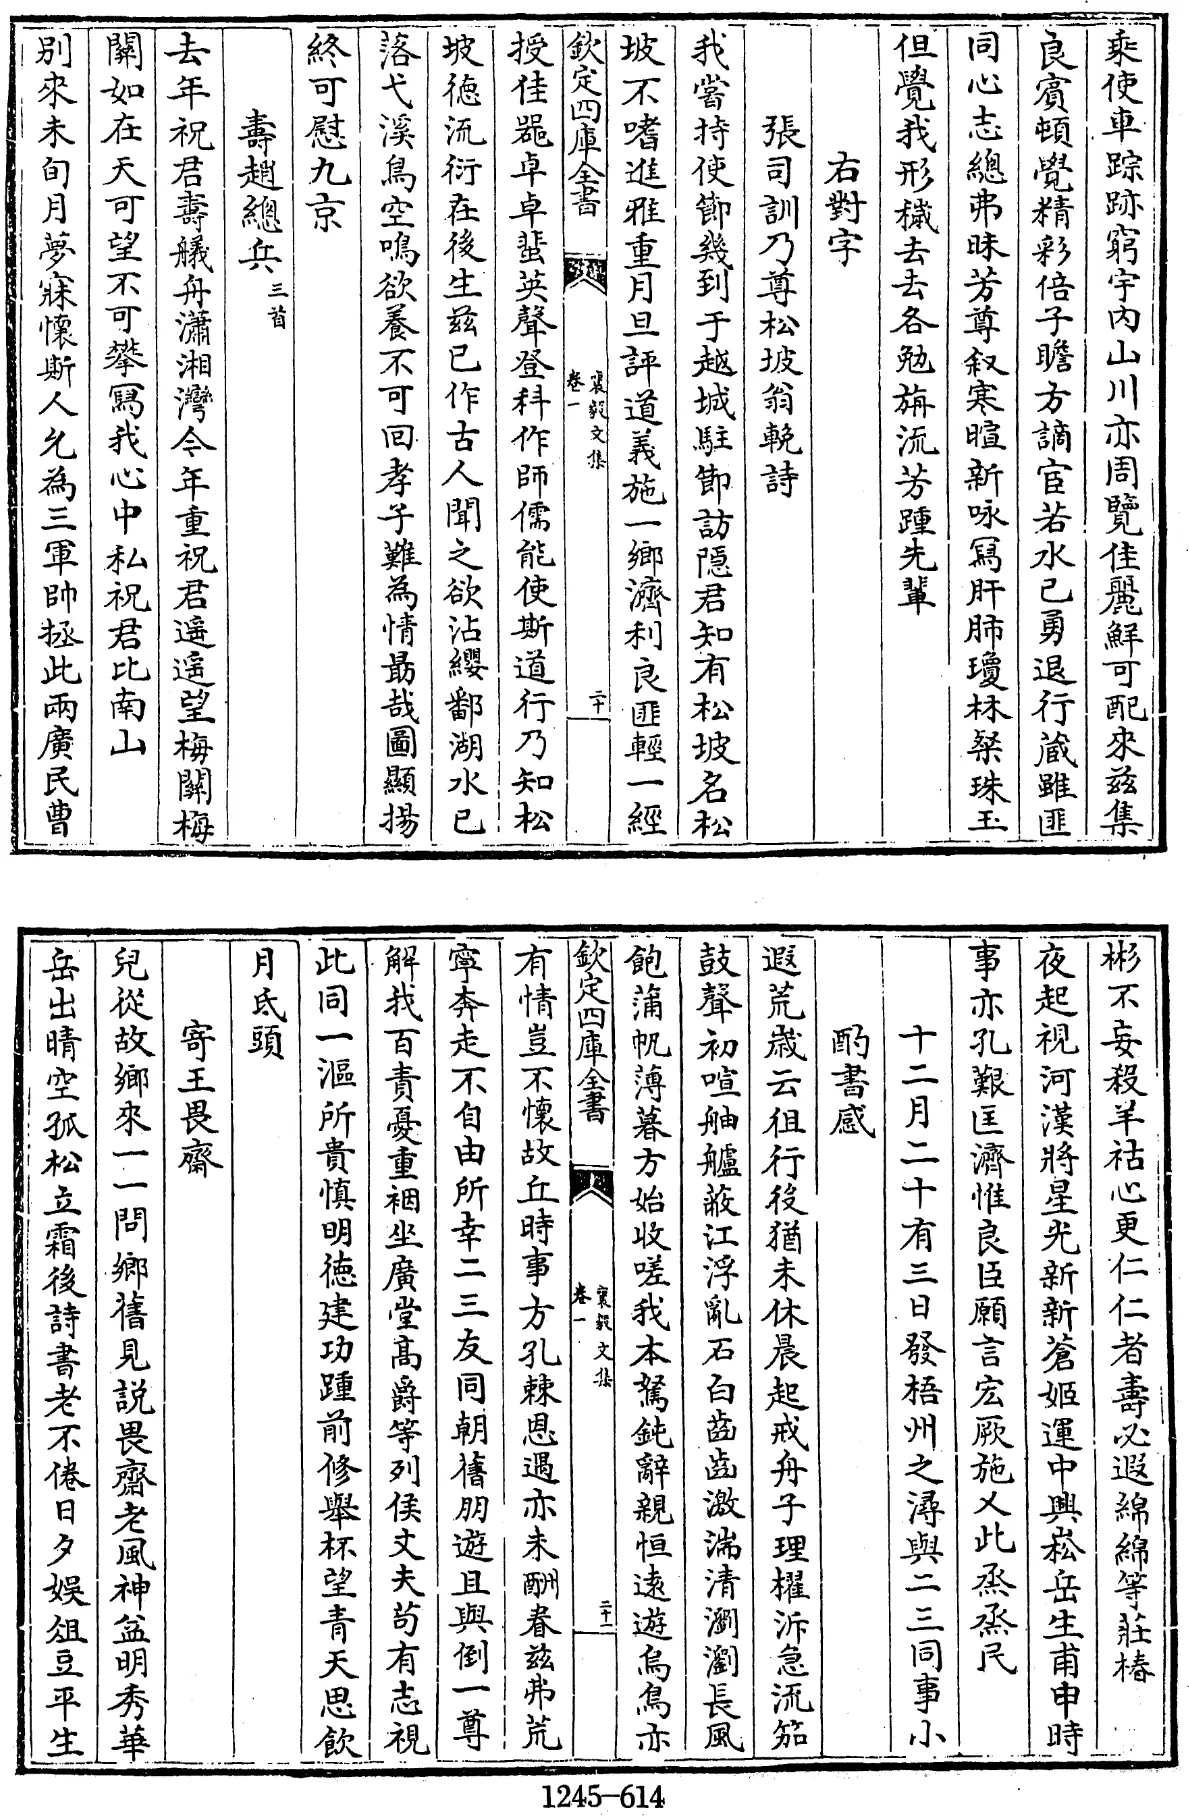 乘使車踪跡窮宇内山川亦周覽佳麗鮮可配來兹集
良賓頓覺精彩倍子瞻方謫宦若水已勇退行蔵雖匪
同心志總弗昧芳尊叙寒暄新咏冩肝肺瓊林粲珠玉
但覺我形穢去去各勉旃流芳踵先輩
右對字
張司訓乃尊松坡翁輓詩
我嘗持使節幾到于越城駐節訪隠君知有松坡名松
坡不嗜進雅重月旦評道義施一鄉濟利良匪輕一經
欽定四庫全書
襄毅文集
卷一
二十
授佳器卓卓蜚英聲登科作師儒能使斯道行乃知松
坡徳流衍在後生兹已作古人聞之欲沾纓鄱湖水已
落弋溪鳥空鳴欲養不可回孝子難為情勗哉圖顯揚
終可慰九京
壽趙總兵三首
去年祝君壽艤舟瀟湘灣今年重祝君遥遥望梅關梅
關如在天可望不可攀冩我心中私祝君比南山
别來未旬月夢寐懷斯人允為三軍帥拯此兩廣民曹
彬不妄殺羊祜心更仁仁者壽必遐綿綿等莊椿
夜起視河漢將星光新新蒼姬運中興崧岳生甫申時
事亦孔艱匡濟惟良臣願言宏厥施乂此烝烝民
十二月二十有三日發梧州之潯與二三同事小
酌書感
遐荒歳云徂行役猶未休晨起戒舟子理櫂泝急流笳
鼓聲初喧舳艫蔽江浮亂石白齒齒激湍清瀏瀏長風
飽蒲帆薄暮方始收嗟我本駑鈍辭親恒逺遊烏鳥亦
欽定四庫全書
襄毅文集
卷一
二十一
有情豈不懷故丘時事方孔棘恩遇亦未酬眷兹弗荒
寧奔走不自由所幸二三友同朝舊朋遊且與倒一尊
解我百責憂重裀坐廣堂髙爵等列侯丈夫茍有志視
此同一漚所貴慎明徳建功踵前修舉杯望青天思飲
月氏頭
寄王畏齋
兒從故鄉來一一問鄉舊見説畏齋老風神益明秀華
岳出晴空孤松立霜後詩書老不倦日夕娱俎豆平生
1245-614